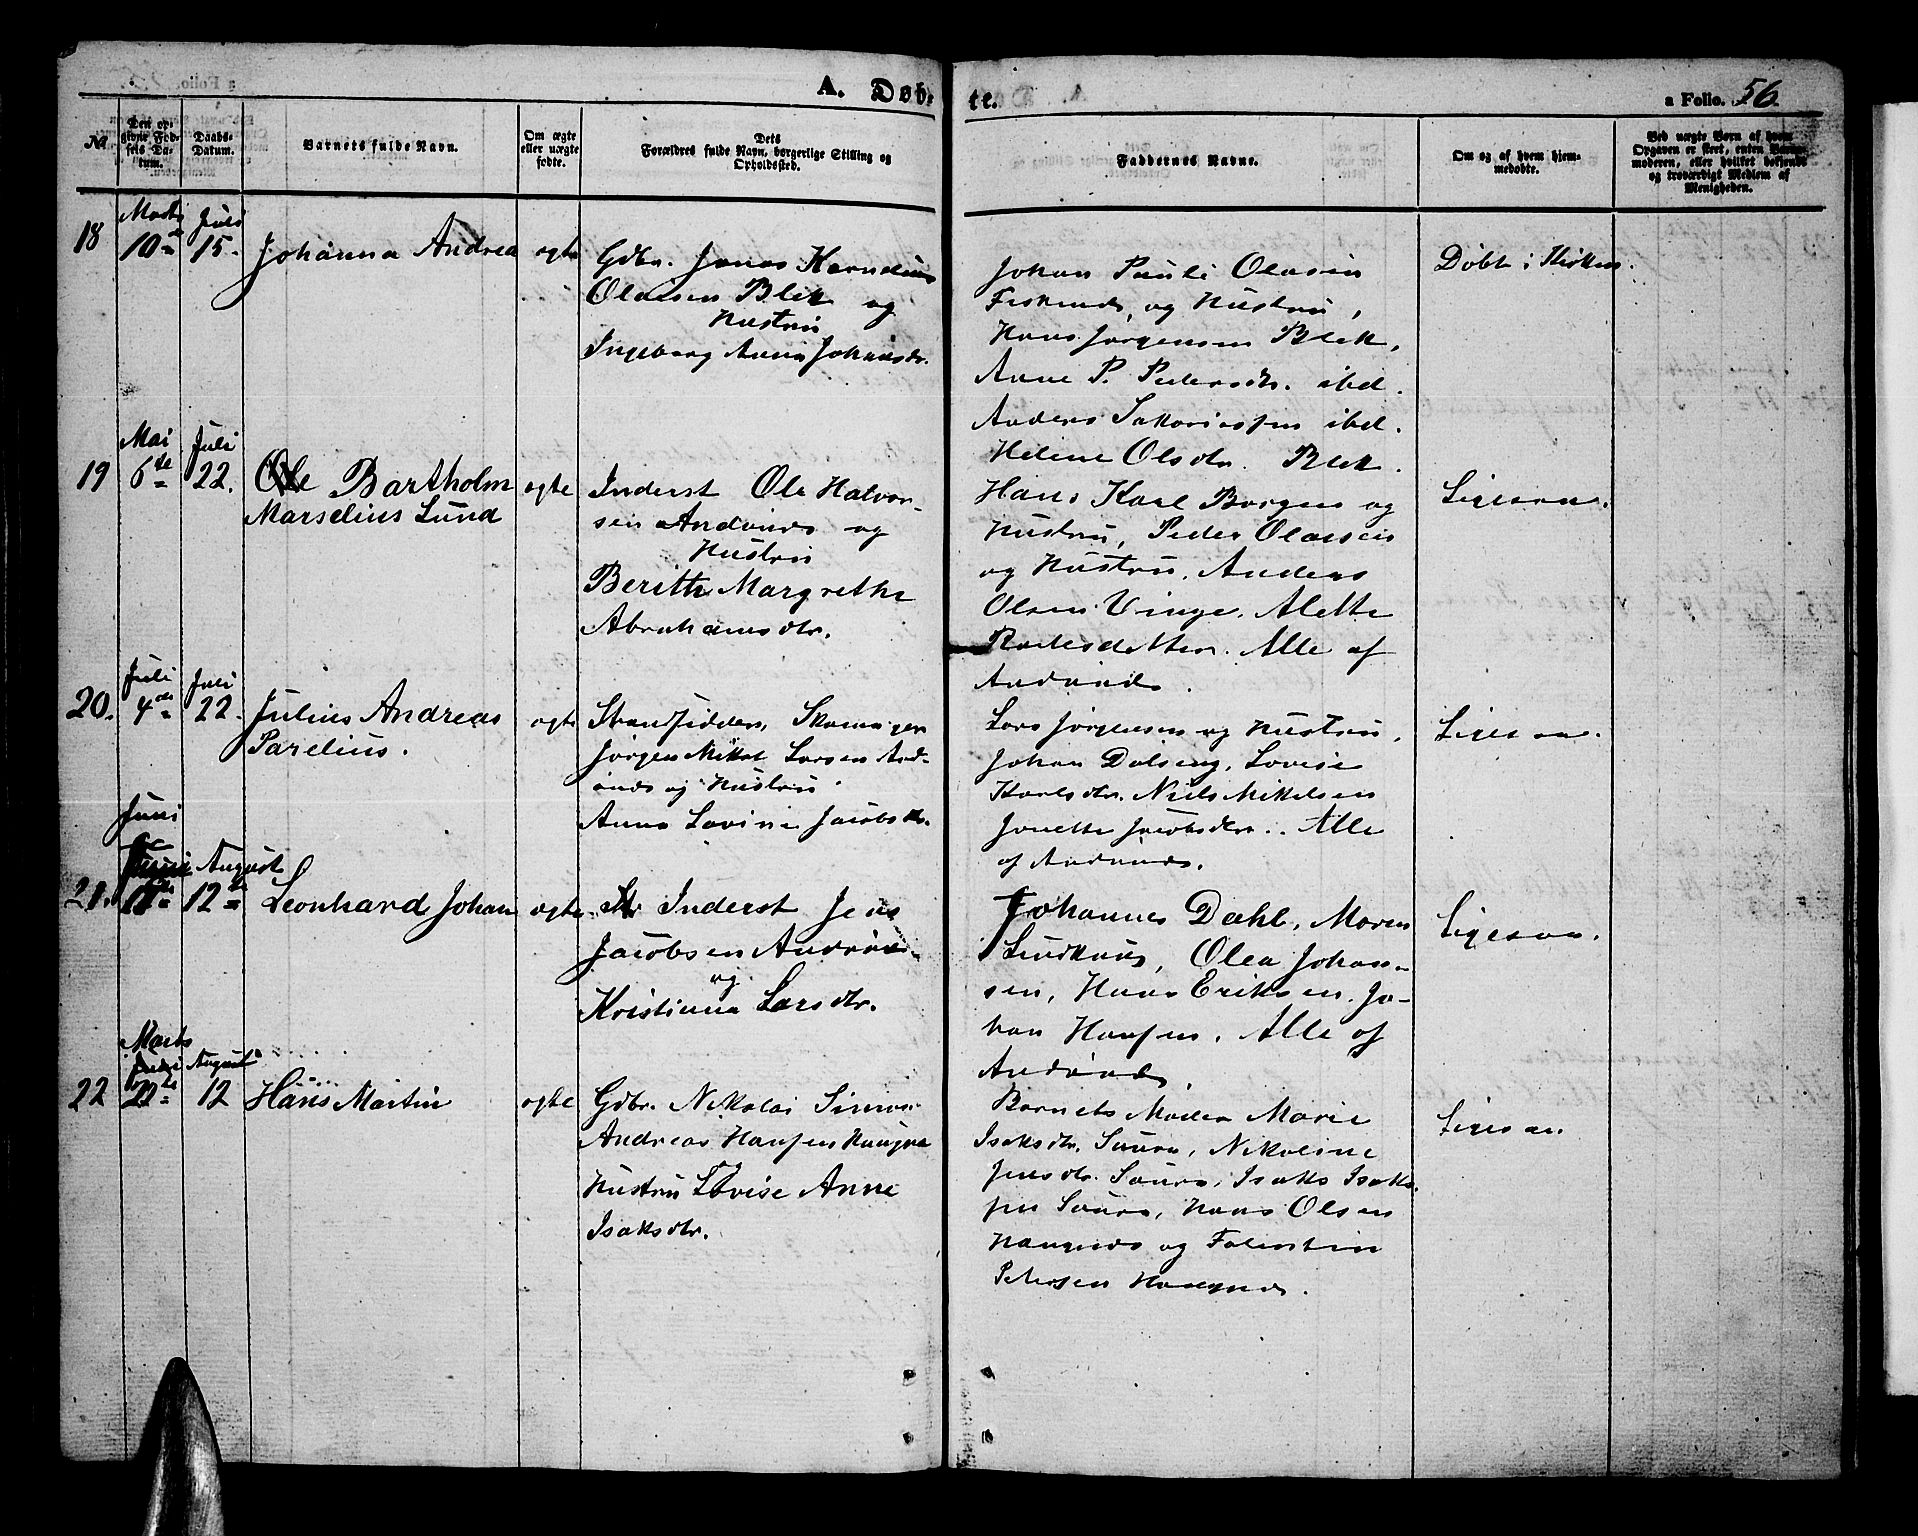 A. Døb-
te.
a Folio. 56
No
Den op-
givne Fød-
sels Da-
tum.
Daabs-
Datum.
Barnets fulde Navn.
Om ægte
eller uægte
fødte.
Dets
Forældres fulde Navn, borgerlige Stilling og
Opholdssted.
Faddernes Navne.
Om og af hvem hjem-
medøbte.
Ved uægte Børn af hvem
Opgaven er skeet, enten Barne-
moderen, eller hvilket bekjendt
og troværdigt Medlem af
Menigheden.
18
Marts
10de
Juli
15.
Johanna Andrea
ægte
Gdbr. Jonas Kornelius
Olaisen Blek og
Hustru
Ingeborg Anna Johansdr.
Johan Pauli Olasen
og Hustru,
Hans Jørgensen Blek,
Anne P. Pedersdtr. ibd.
Anders Sakariassen ibd.
Helene Olsdtr. Blek.
Døbt i Kirken.
19
Mai
6te
Juli
22.
Ole Bartholm
Marselius Lund
ægte
Inderst Ole Halvor-
sen Andønæs og
Hustru
Berith Margrethe
Abrahamsdtr.
Hans Karl Borgen og
Hustru, Peder Olaisen
og Hustru, Anders
Olsen Vinge, Alette
Alle af
Andønæs.
Ligesaa.
20.
Juli
4de
Juli
22.
Julius Andreas
Parelius.
ægte
Strandsidder, Skomager
Jørgen Mikal Larsen And-
ønæs og Hustru
Anna Lovine Jacobsdtr.
Lars Jørgensen og Hustru,
Johan Dalseng, Lovise
Karlsdtr. Niels Mikelsen
Jonette Jacobsdtr. Alle
af Andønæs.
Ligesaa.
21.
Juni
August
12te
Leonhard Johan
ægte
Str Inderst Jens
Jacobsen Andønæs
og
Kristianna Larsdtr.
Johannes Dahl, Maren
Lindkuus, Olea Johan-
sen, Hans Eriksen. Jo-
han Hansen. Alle af
Andønæs.
Ligesaa.
22
Marts
August
12
Hans Martin
ægte
Gdbr. Nikolai Simon
Andreas Hansen Haugnæs
og
Hustru Lovise Anne
Isaksdtr.
Barnets Moder Marie
Isaksdtr. Saura, Nikoline
Jensdtr. Saura, Isak Isak-
sen Saura, Hans Olsen
Haugnæs og Falentin
Petersen Haugnæs.
Ligesaa.